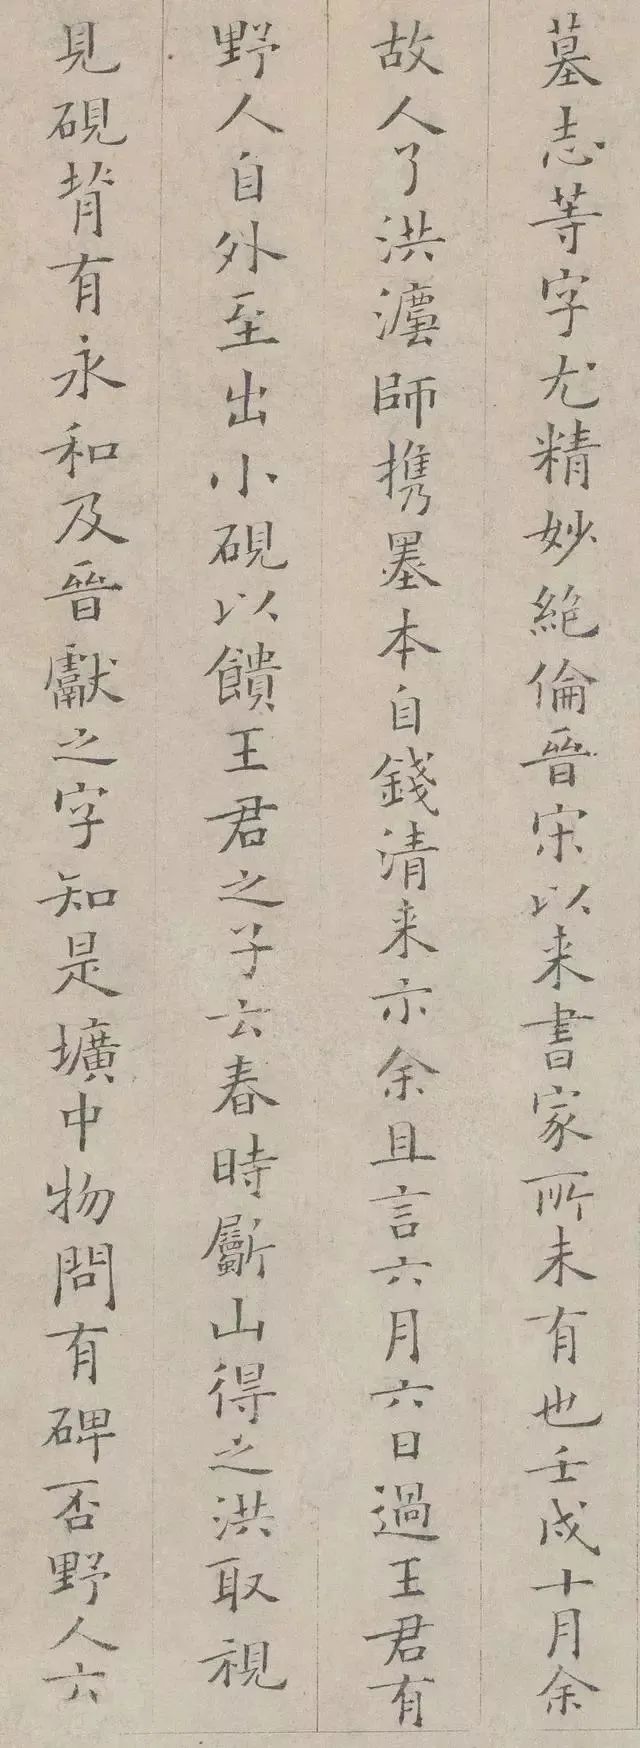 墓志等字尤精妙絶倫晉宋以来書家所未有也壬戌十月余
故人了洪㵯師携墨本自錢清来示余且言六月六日過王君有
野人自外至出小硯以饋王君之子云春時斸山得之洪取視
見硯背有永和及晉獻之字知是壙中物問有碑否野人六